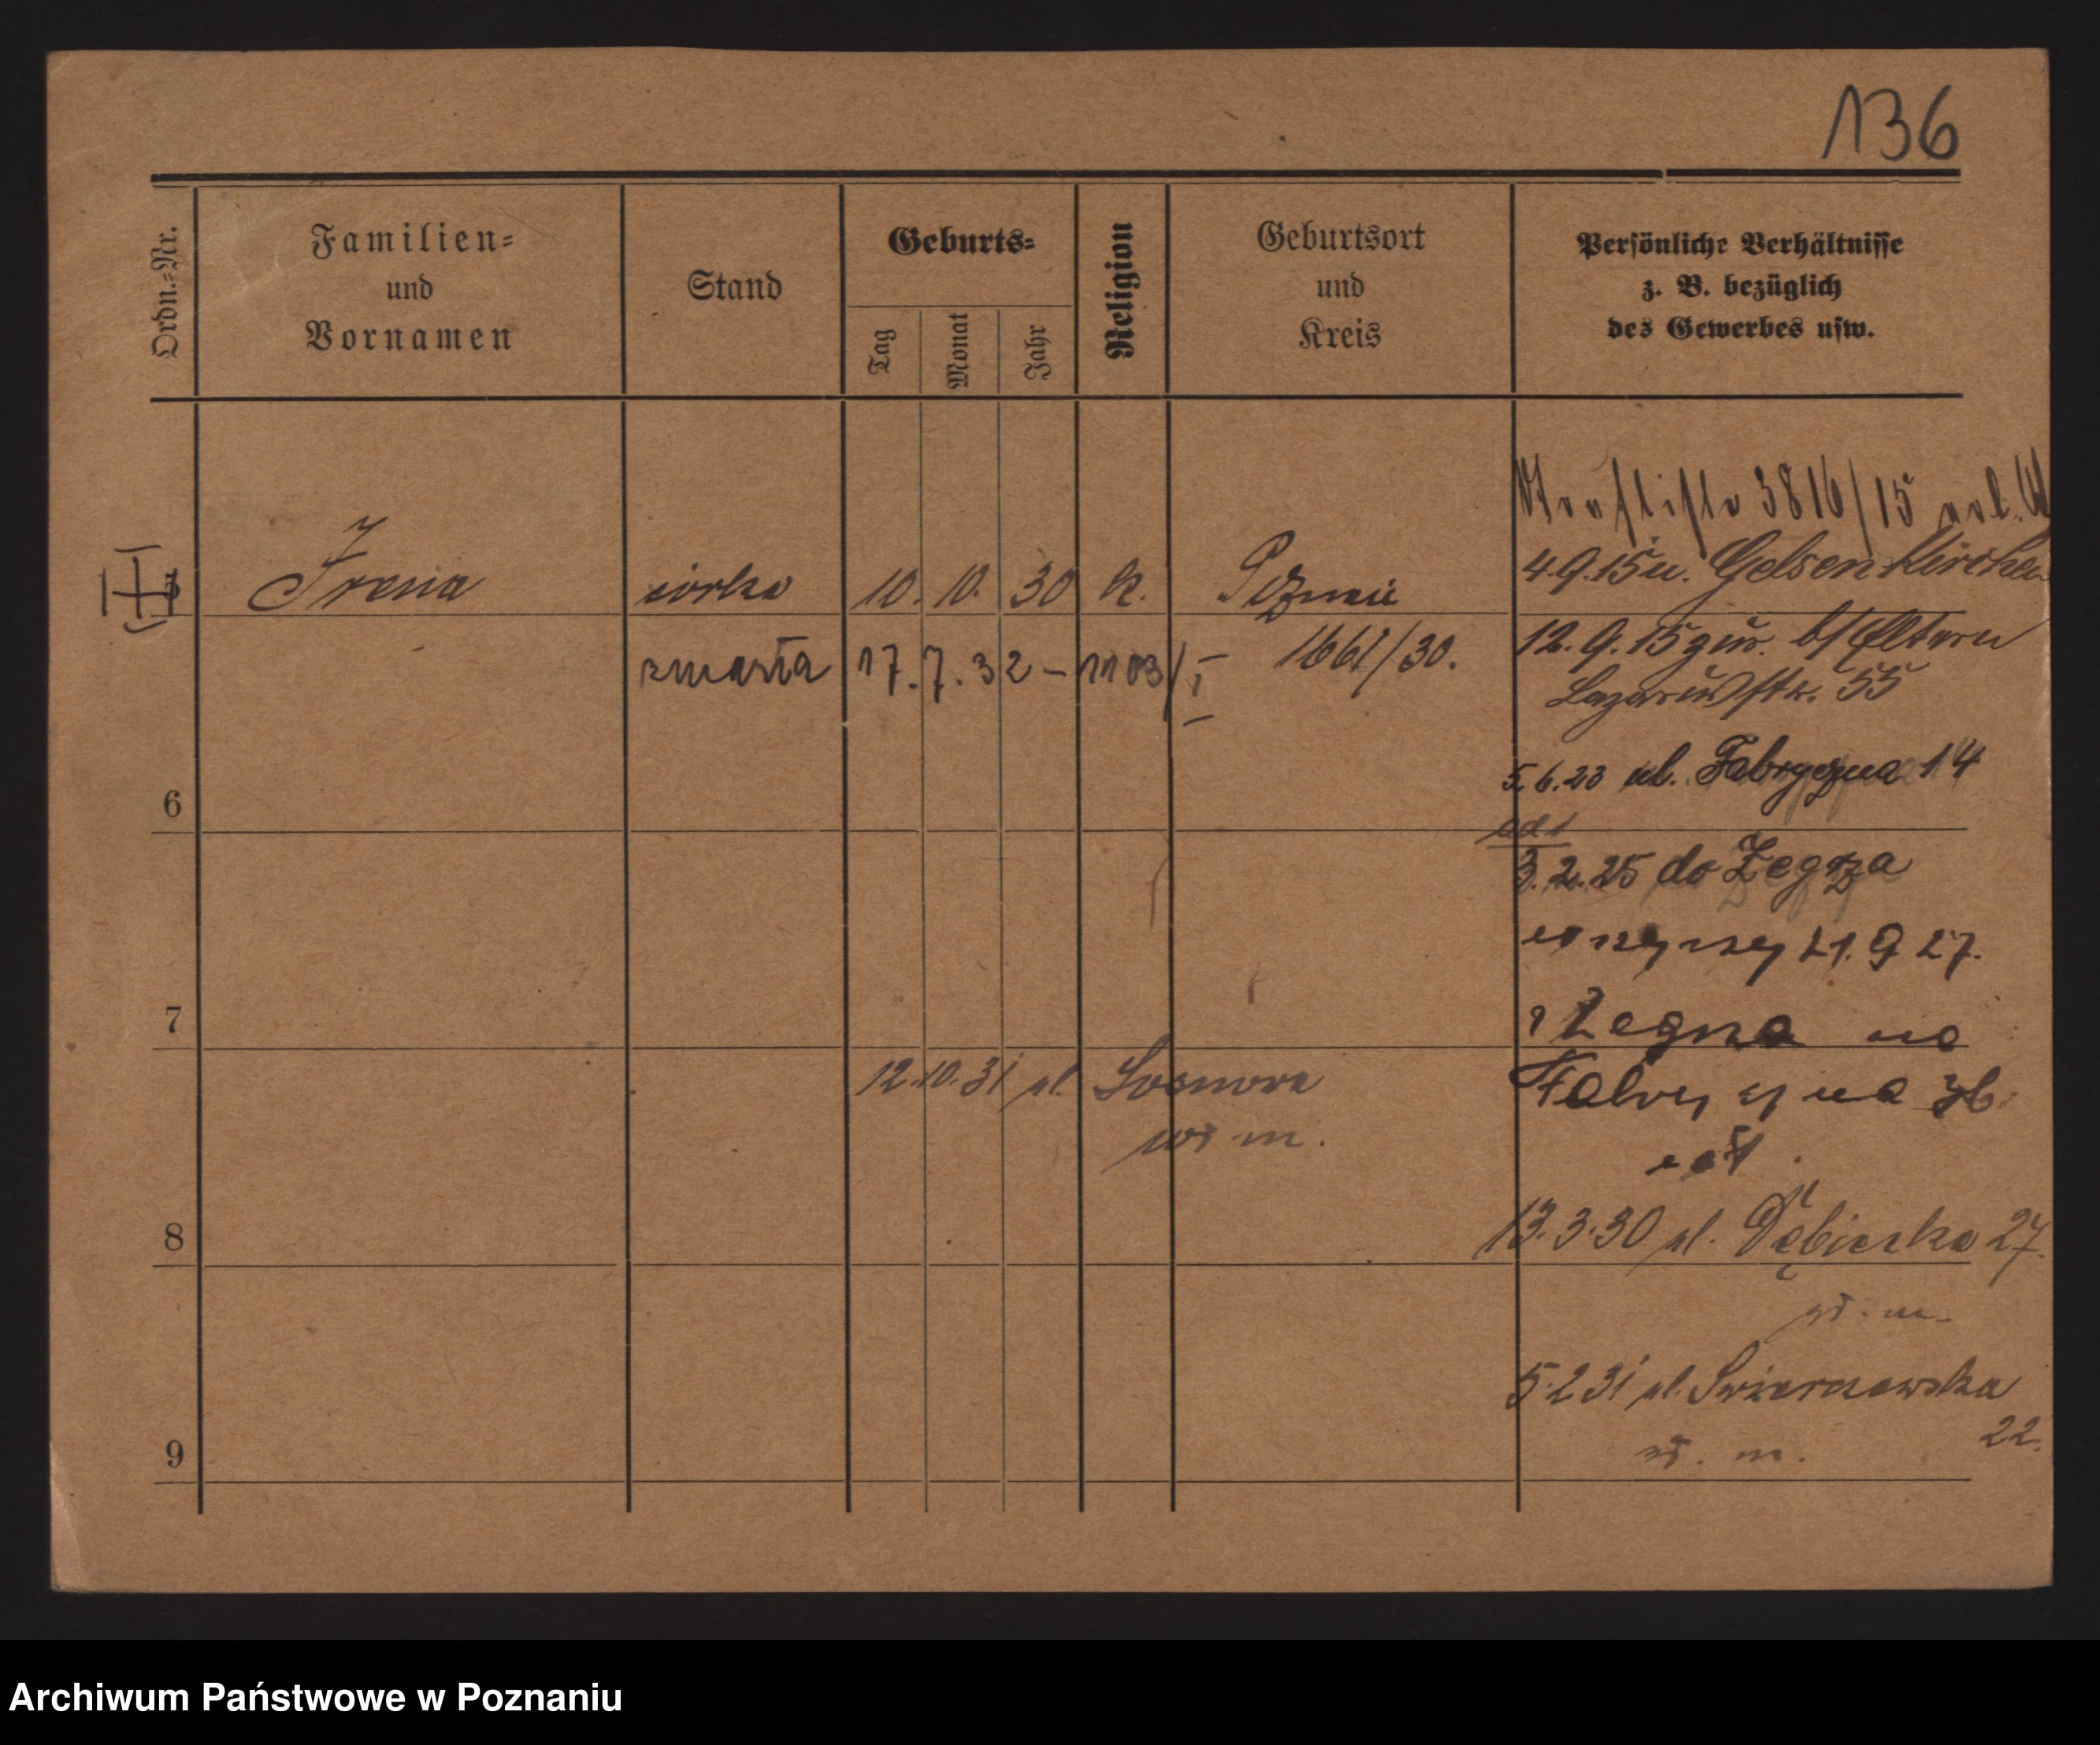 136
Ordn.=Nr.
Familien=
und
Vornamen
Stand
Geburts=
Tag
Monat
Jahr
Religion
Geburtsort
und
Kreis
Persönliche Verhältnisse
z. B. bezüglich
des Gewerbes usw.
3816/15
4.9.15 u. Gelsenkirchen
Irena córka 10. 10. 30 k. Poznań
12.9.15 zur. b/ Eltern
zmarła 17.7.32 – 1103/I 1661/30.
Lazarusstr. 55
5.6.23 ul. Fabryczna 14
6
3.2.25 do Żegrza
21.9 27.
7
z Żegrza na
12.10.31 ul. Sosnowa
Fabryczna 36
wł m.
13.3.30 ul. Dębiecka 27.
8
wł. m.
5.2 31 ul. Swierczewska
22.
9
wł. m.
Archiwum Państwowe w Poznaniu